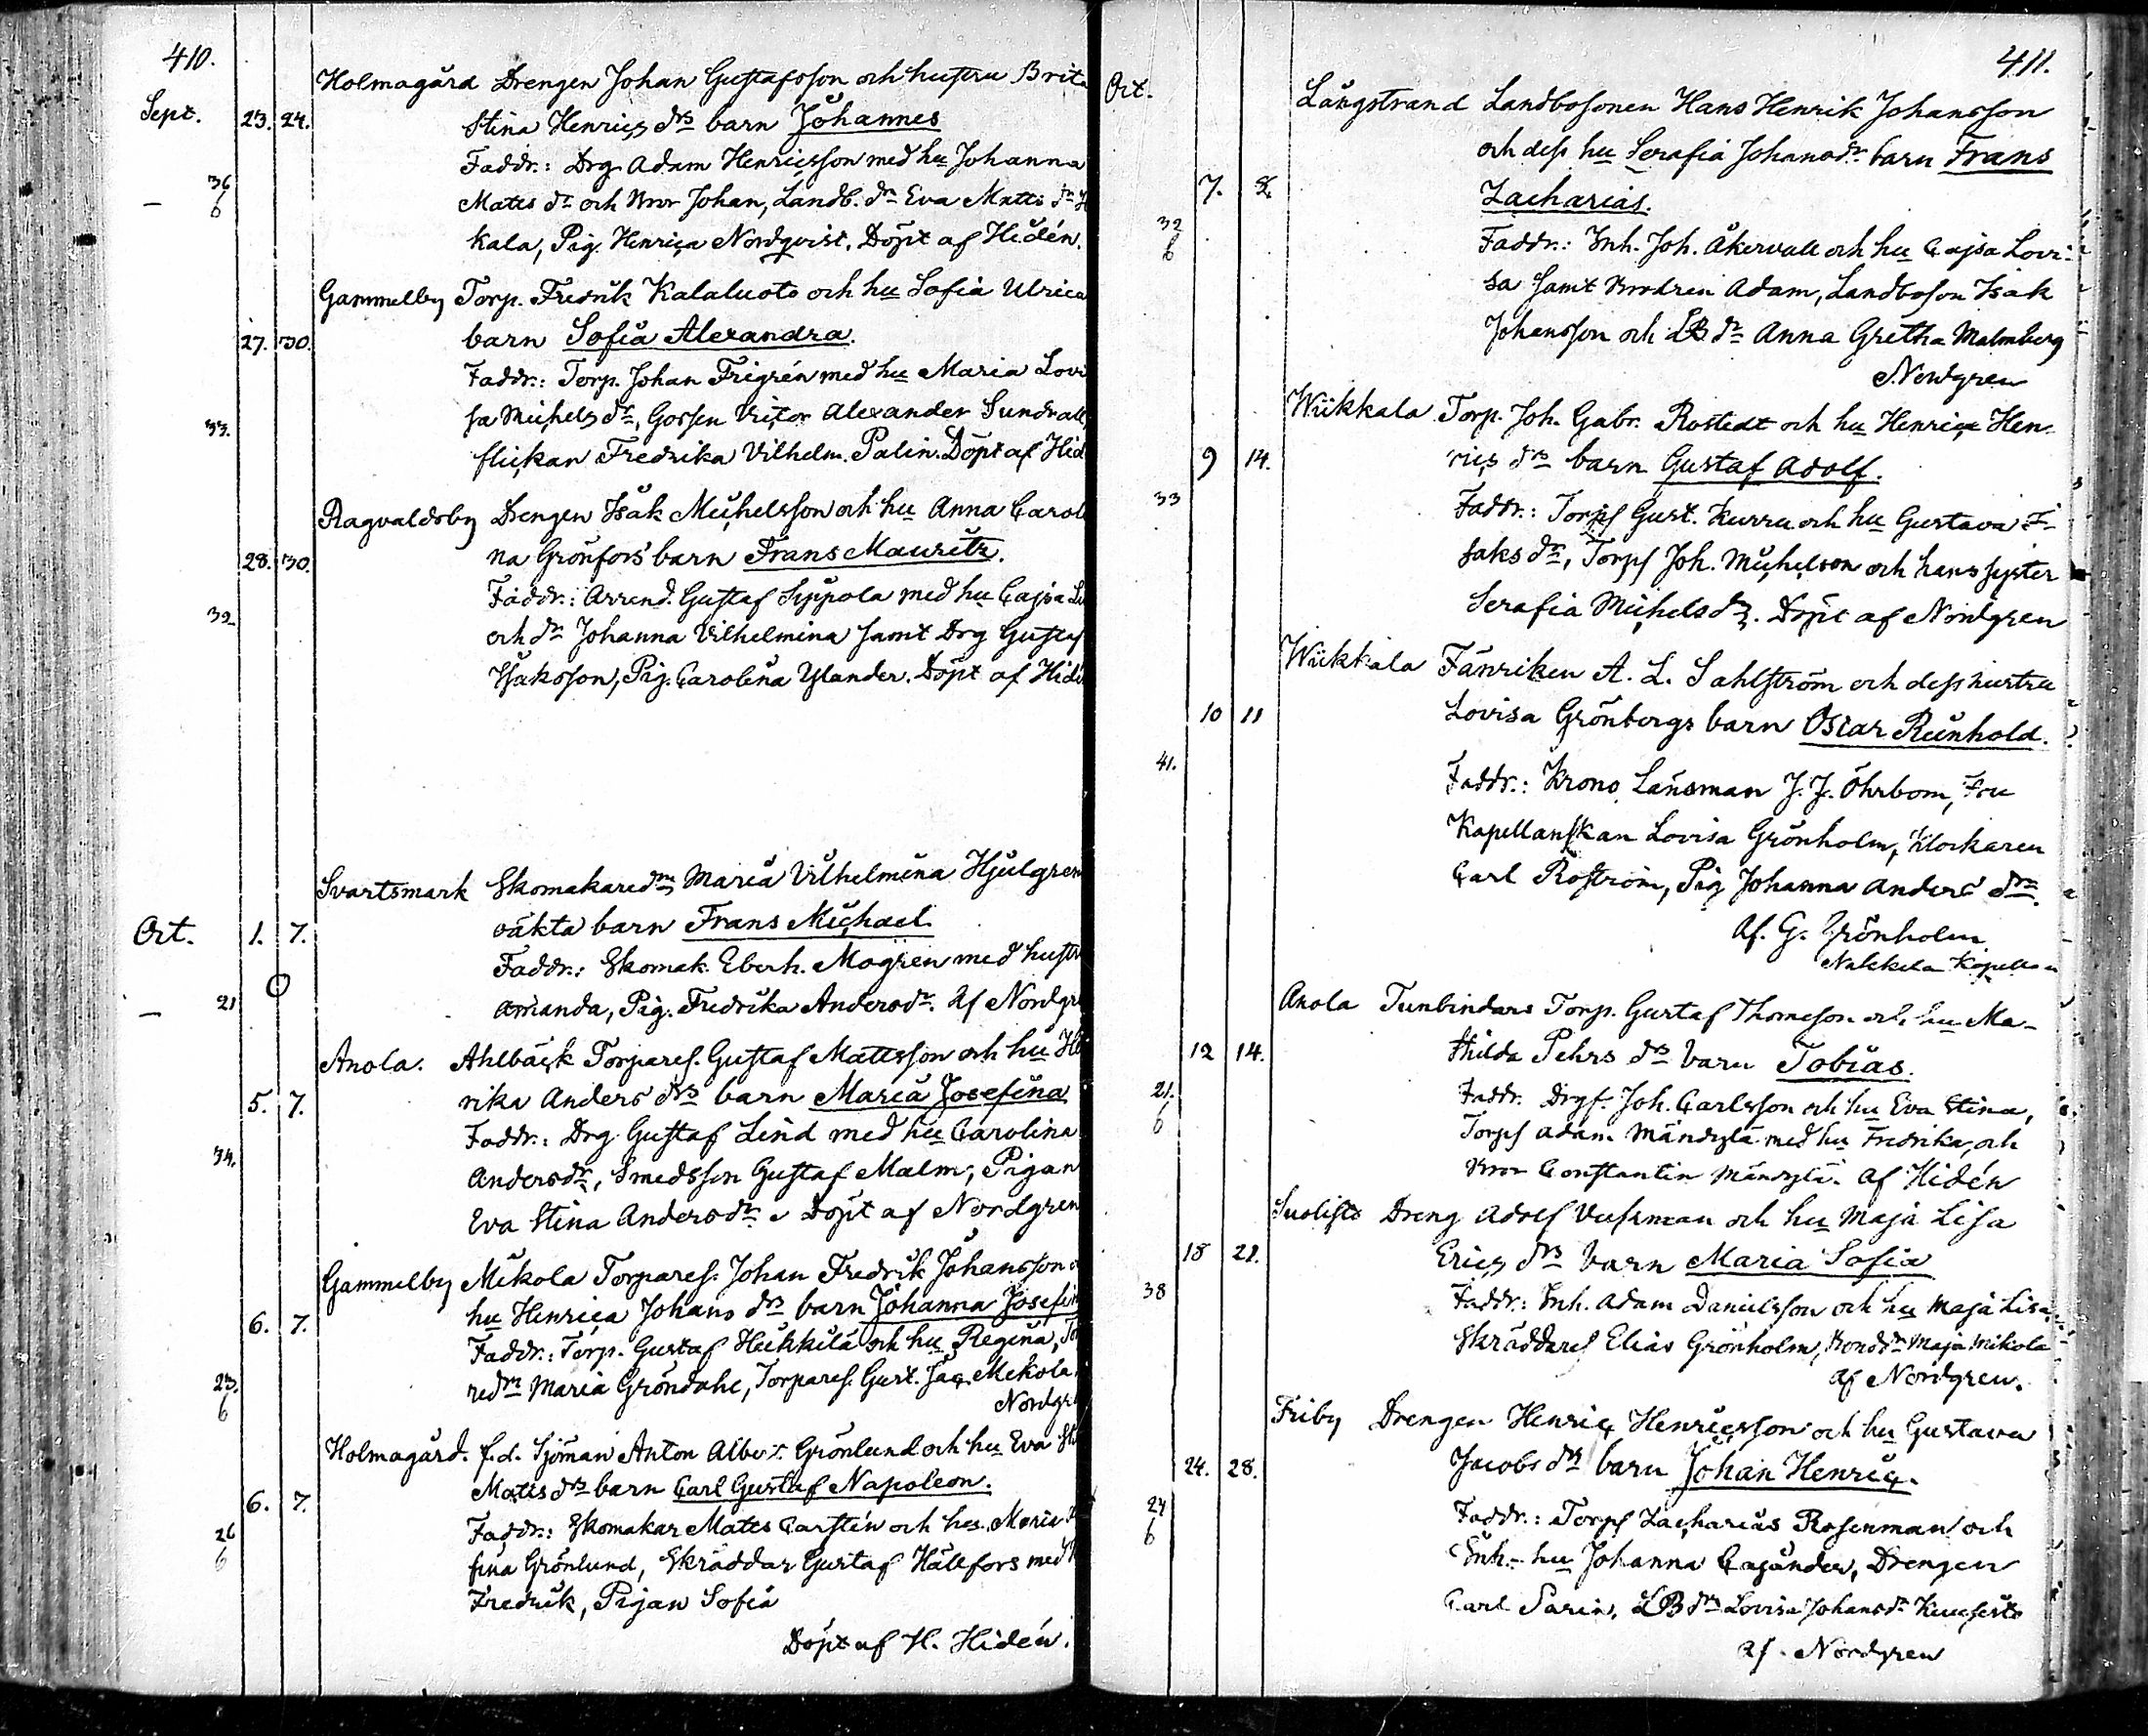 410.
Holmagård Drengen Johan Gustafsson och hustru Brita
Sept. 23. 24. Stina Henrics drs barn Johannes
Faddr.: Drg Adam Henricsson med hu Johanna
36 Matts dr och bror Johan, Landb. dr Eva Matts dr
6 kala, Pig. Henrica Nordqvist. Döpt af Hidén.
Gammelby Torp. Fredrik Kalaluoto och hu Sofia Ulrica
27. 30. barn Sofia Alexandra.
Faddr.: Torp. Johan Frigrén med hu Maria Lovi
33. sa Michels dr, Gossen Victor Alexander Sundvall,
flickan Fredrika Vilhelm. Palin. Döpt af Hid
Ragvaldsby Drengen Isak Michelsson och hu Anna Caroli
28. 30. na Grönfors barn Frans Mauritz.
Faddr.: Arrend. Gustaf Sippola med hu Cajsa Lo
32 och dr Johanna Vilhelmina samt Drg Gustaf
Isaksson, Pig. Carolina Ylander. Döpt af Hidé
Svartsmark Skomakaredrn Maria Vilhelmina Hjulgren
Oct. 1. 7. oäkta barn Frans Michael.
Faddr.: Skomak. Eberh. Mogren med hustr
21 Amanda, Pig. Fredrika Andersdr. Af Nordgre
Anola. Ahlbäck Torpares. Gustaf Mattsson och hu He
5. 7. rika Anders drs barn Maria Josefina
Faddr.: Drg Gustaf Lind med hu Carolina
34. Andersdr, Smedsson Gustaf Malm, Pigan
Eva Stina Andersdr. Döpt af Nordgren
Gammelby Mikola Torpares. Johan Fredrik Johansson o
6. 7. hu Henrica Johans drs barn Johanna Josefin
Faddr.: Torp. Gustaf Heikkilä och hu Regina, Tor
23. redrn Maria Gröndahl, Torpares. Gust. Jac. Mikola.
6 Nordgre
Holmagård. f.d. Sjöman Anton Albert Grönlund och hu Eva Sti
6. 7. Matts drs barn Carl Gustaf Napoleon.
26 Faddr.: Skomakar Matts Carstén och hu Maria
6 fina Grönlund, Skräddar Gustaf Hällfors med
Fredrik, Pigan Sofia
Döpt af H. Hidén.
411.
Oct. Långstrand Landbosonen Hans Henrik Johansson
och dess hu Serafia Johansdr. barn Frans
7. 8. Zacharias.
32 Faddr.: Inh. Joh. Åkervall och hu Cajsa Lovi-
6 sa samt brodren Adam, Landboson Isak
Johansson och LB dr Anna Gretha Malmberg
Nordgren
Wiikkala Torp. Joh. Gabr. Rostedt och hu Henrica Hen-
9 14. rics drs barn Gustaf Adolf.
33 Faddr.: Torps Gust. Kurru och hu Gustava I-
saks dr, Torps Joh. Michelson och hans syster
Serafia Michels dr. Döpt af Nordgren
Wiikkala Fänriken A. L. Sahlström och dess hustru
10 11 Lovisa Grönbergs barn Oscar Reinhold.
41. Faddr.: Krono Länsman J. J. Öhrbom, Fru
Kapellanskan Lovisa Grönholm, Klockaren
Carl Roström, Pig Johanna Anders dr.
Af. G. Grönholm.
Nakkila Kapellan
Anola Tunbindars Torp. Gustaf Thomsson och hu Ma-
12 14. thilda Pehrs drs barn Tobias.
21. Faddr. Drgs. Joh. Carlsson och hu Eva Stina,
6 Torps Adam Mändylä med hu Fredrika, och
bror Constantin Mändylä. Af Hidén
Suolisto Dreng Adolf Vessman och hu Maja Lisa
18 21. Erics drs barn Maria Sofia
38 Faddr.: Inh. Adam Danielsson och hu Maja Lisa,
Skräddares Elias Grönholm, Bonddr Maja Mikola
af Nordgren.
Friby Drengen Henric Henricsson och hu Gustava
24. 28. Jacobs drs barn Johan Henric.
24 Faddr.: Torps Zacharias Rosenman och
6 Inh. hu Johanna Cajander, Drengen
Carl Sarin, LB dr Lovisa Johansdr
Af Nordgren